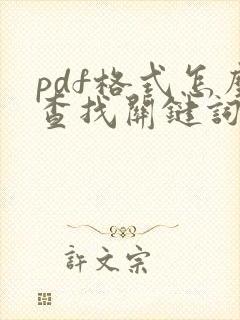 pdf格式怎麼
查找關鍵詞
許文宗